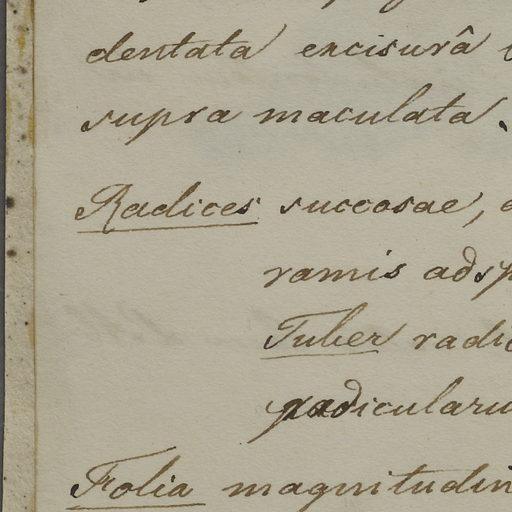 dentata excisurâ
supra maculata.
Radices succosae,
ramis adsp
Tuber radic
radicularu
Folia magnitudin